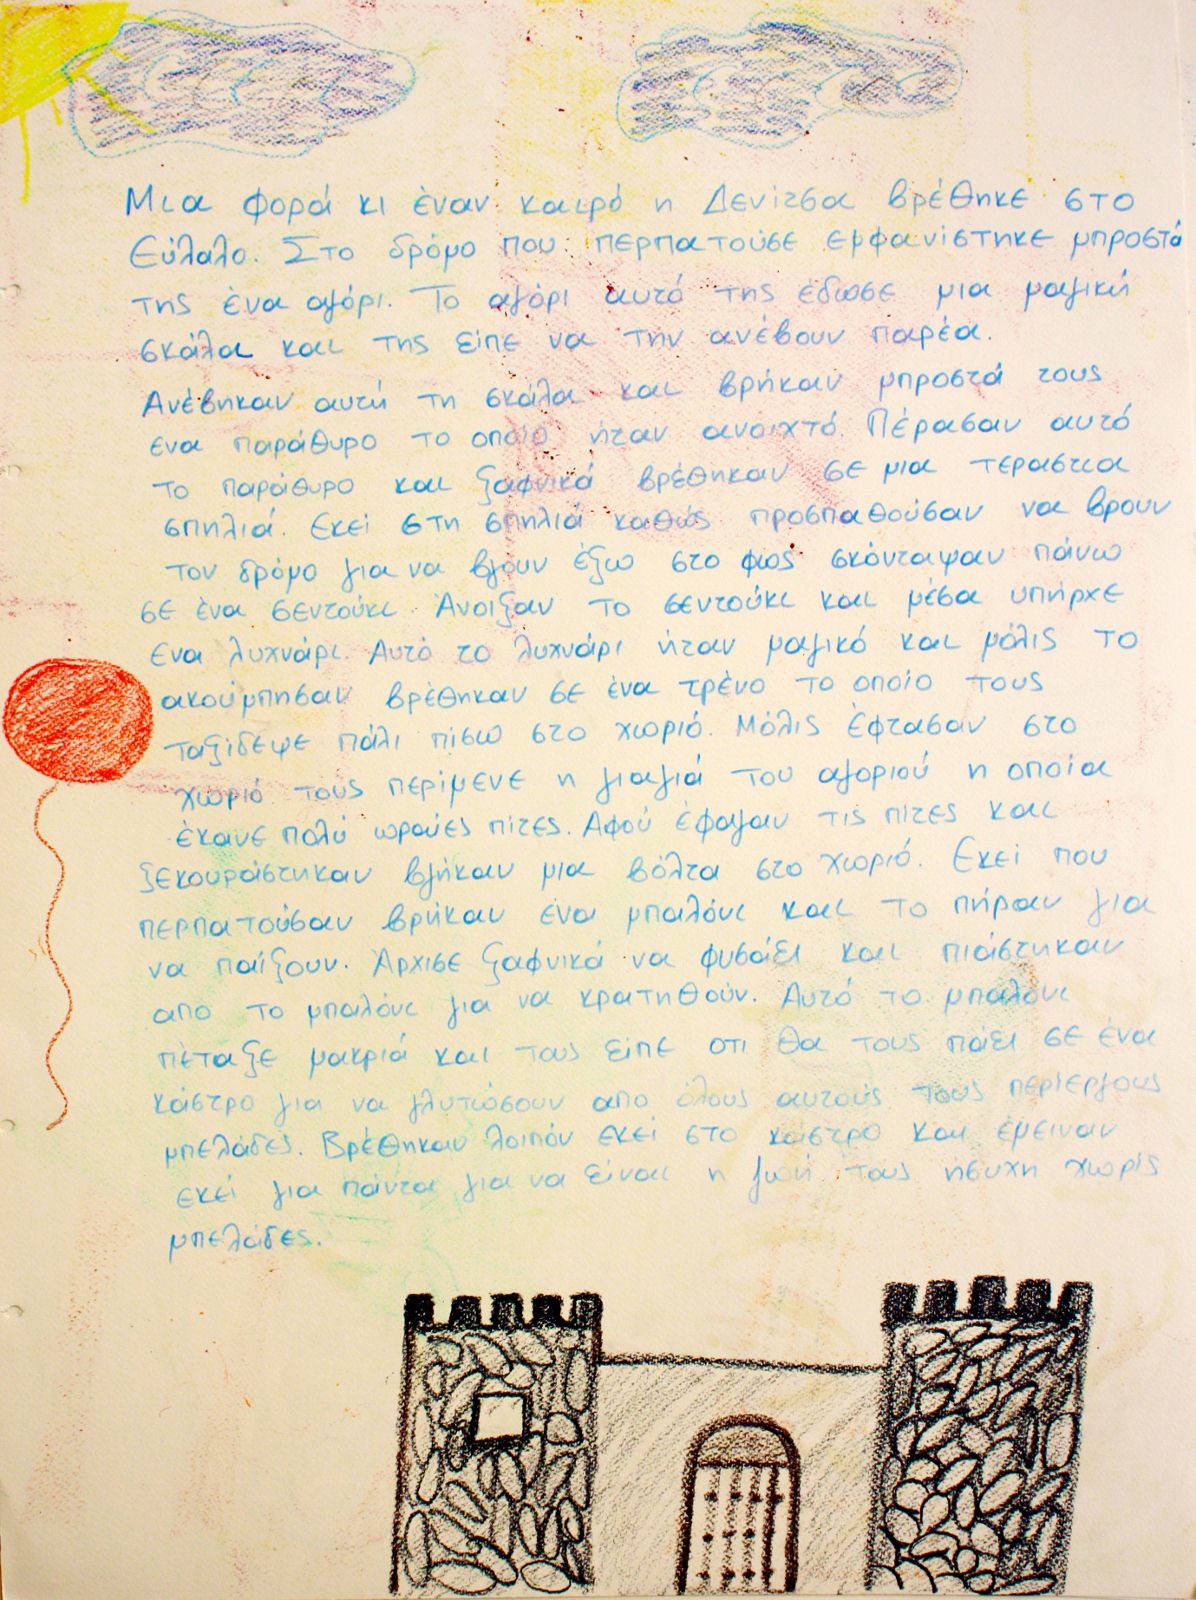 Μια φορά κι έναν καιρό η Δενίτσα βρέθηκε στο
Εύλαλο. Στο δρόμο που περπατούσε εμφανίστηκε μπροστά
της ένα αγόρι. Το αγόρι αυτό της έδωσε μια μαγική
σκάλα και της είπε να την ανέβουν παρέα.
Ανέβηκαν αυτή τη σκάλα και βρήκαν μπροστά τους
ενα παράθυρο το οποίο ήταν ανοιχτό. Πέρασαν αυτό
το παράθυρο και ξαφνικά βρέθηκαν σε μια τεραστια
σπηλιά. Εκεί στη σπηλιά καθώς προσπαθούσαν να βρουν
τον δρόμο για να βγουν έξω στο φως σκόνταψαν πάνω
σε ένα σεντούκι. Άνοιξαν το σεντούκι και μέσα υπήρχε
ενα λυχνάρι. Αυτό το λυχνάρι ήταν μαγικό και μόλις το
ακούμπησαν βρέθηκαν σε ένα τρένο το οποίο τους
ταξίδεψε πάλι πίσω στο χωριό. Μόλις έφτασαν στο
χωριό τους περίμενε η γιαγιά του αγοριού η οποία
έκανε πολύ ωραίες πίτες. Αφού έφαγαν τις πίτες και
ξεκουράστηκαν βγήκαν μια βόλτα στο χωριό. Εκεί που
περπατούσαν βρήκαν ένα μπαλόνι και το πήραν για
να παίξουν. Άρχισε ξαφνικά να φυσάει και πιάστηκαν
απο το μπαλόνι για να κρατηθούν. Αυτό το μπαλόνι
πέταξε μακριά και τους είπε οτι θα τους πάει σε ένα
κάστρο για να γλυτώσουν απο όλους αυτούς τους περίεργους
μπελάδες. Βρέθηκαν λοιπόν εκεί στο κάστρο και έμειναν
εκεί για πάντα για να είναι η ζωή τους ήσυχη χωρίς
μπελάδες.